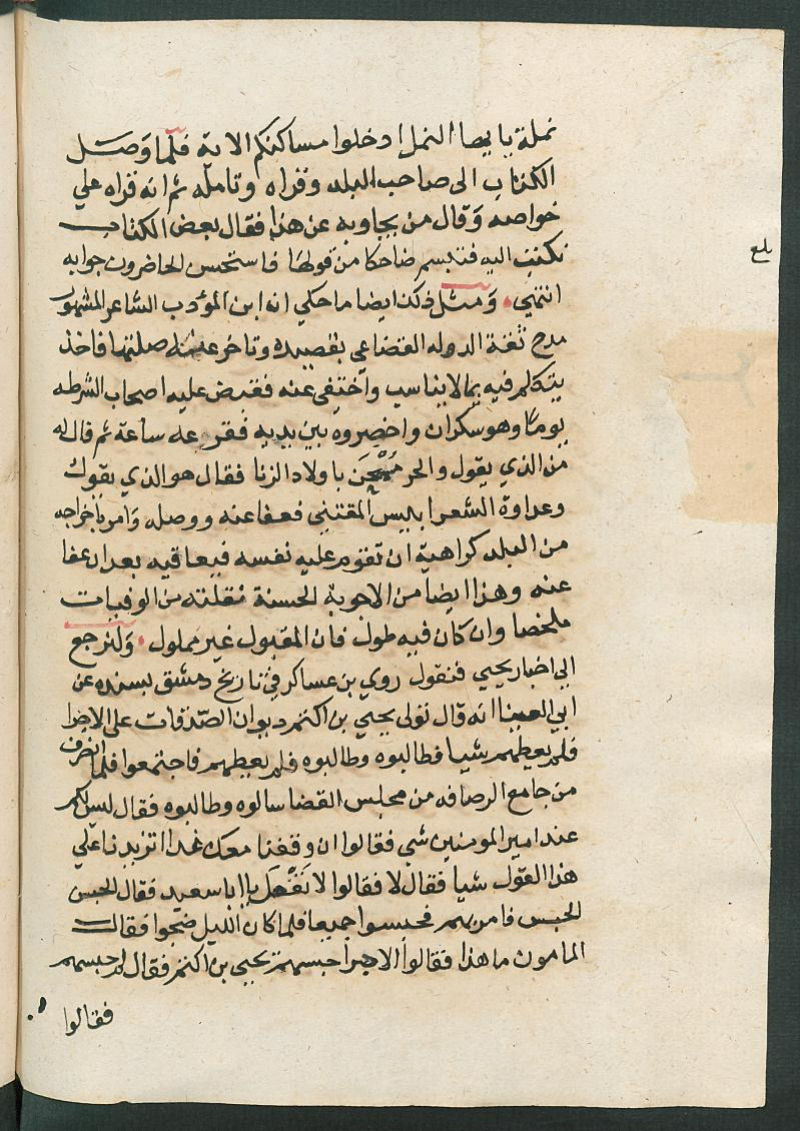 نملة يا يها النمل ادخلوا مساكنكم الاية فلما وصل
الكتاب الى صاحب البلد وقراه وتامله ثم انه قراه علي
خواصه وقال من يجاوبه عن هذا فقال بعض الكتاب
نكتب اليه فتبسم ضاحكا من قولها فاستحسن الحاضرون جوابه
انتهي ومثل ذلك ايضا ما حكي انه ابن المؤدب الشاعر المشهور
مدح ثقة الدوله القضاعي بقصيده وتاخر عنه صلتها فاخذ
يتكلم فيه بما لا يناسب واختفى عنه فقبض عليه اصحاب الشرطه
يوما وهو سكران واحضروه بين يديه فقرعه ساعة ثم قال له
من الذي يقول والحر ممتحن باولاد الزنا فقال هو الذي يقول
وعداوة الشعرا بليس المقتني فعفا عنه ووصله وامر باخراجه
من البلد كراهية ان تقوم عليه نفسه فيعاقبه بعد ان عفا
عنه وهذا ايضا من الاجوبة الحسنة نقلته من الوفيات
ملخصا وان كان فيه طول فان المقبول غير مملول ولنرجع
الى اخبار يحيي فنقول روي بن عساكر في تاريخ دمشق بسنده عن
ابي العينا انه قال تولى يحيي بن اكثم ديوان الصدقات على الاضرا
فلم يعطهم شيا فطالبوه وطالبوه فلم يعطهم فاجتمعوا فلما انصرف
من جامع الرصافه من مجلس القضا سالوه وطالبوه فقال ليس لكم
عند امير المومنين شي فقالوا ان وقفنا معك غدا اتزيدنا علي
هذا القول شيا فقال لا فقالوا لا تفعل يا ابا سعيد فقال الحبس
الحبس فامر بهم فحبسوا جميعا فلما كان الليل ضجوا فقال
المامون ما هذا فقالوا الاضرا حبسهم يحيي بن اكثم فقال لم حبسهم
فقالوا
بلغ